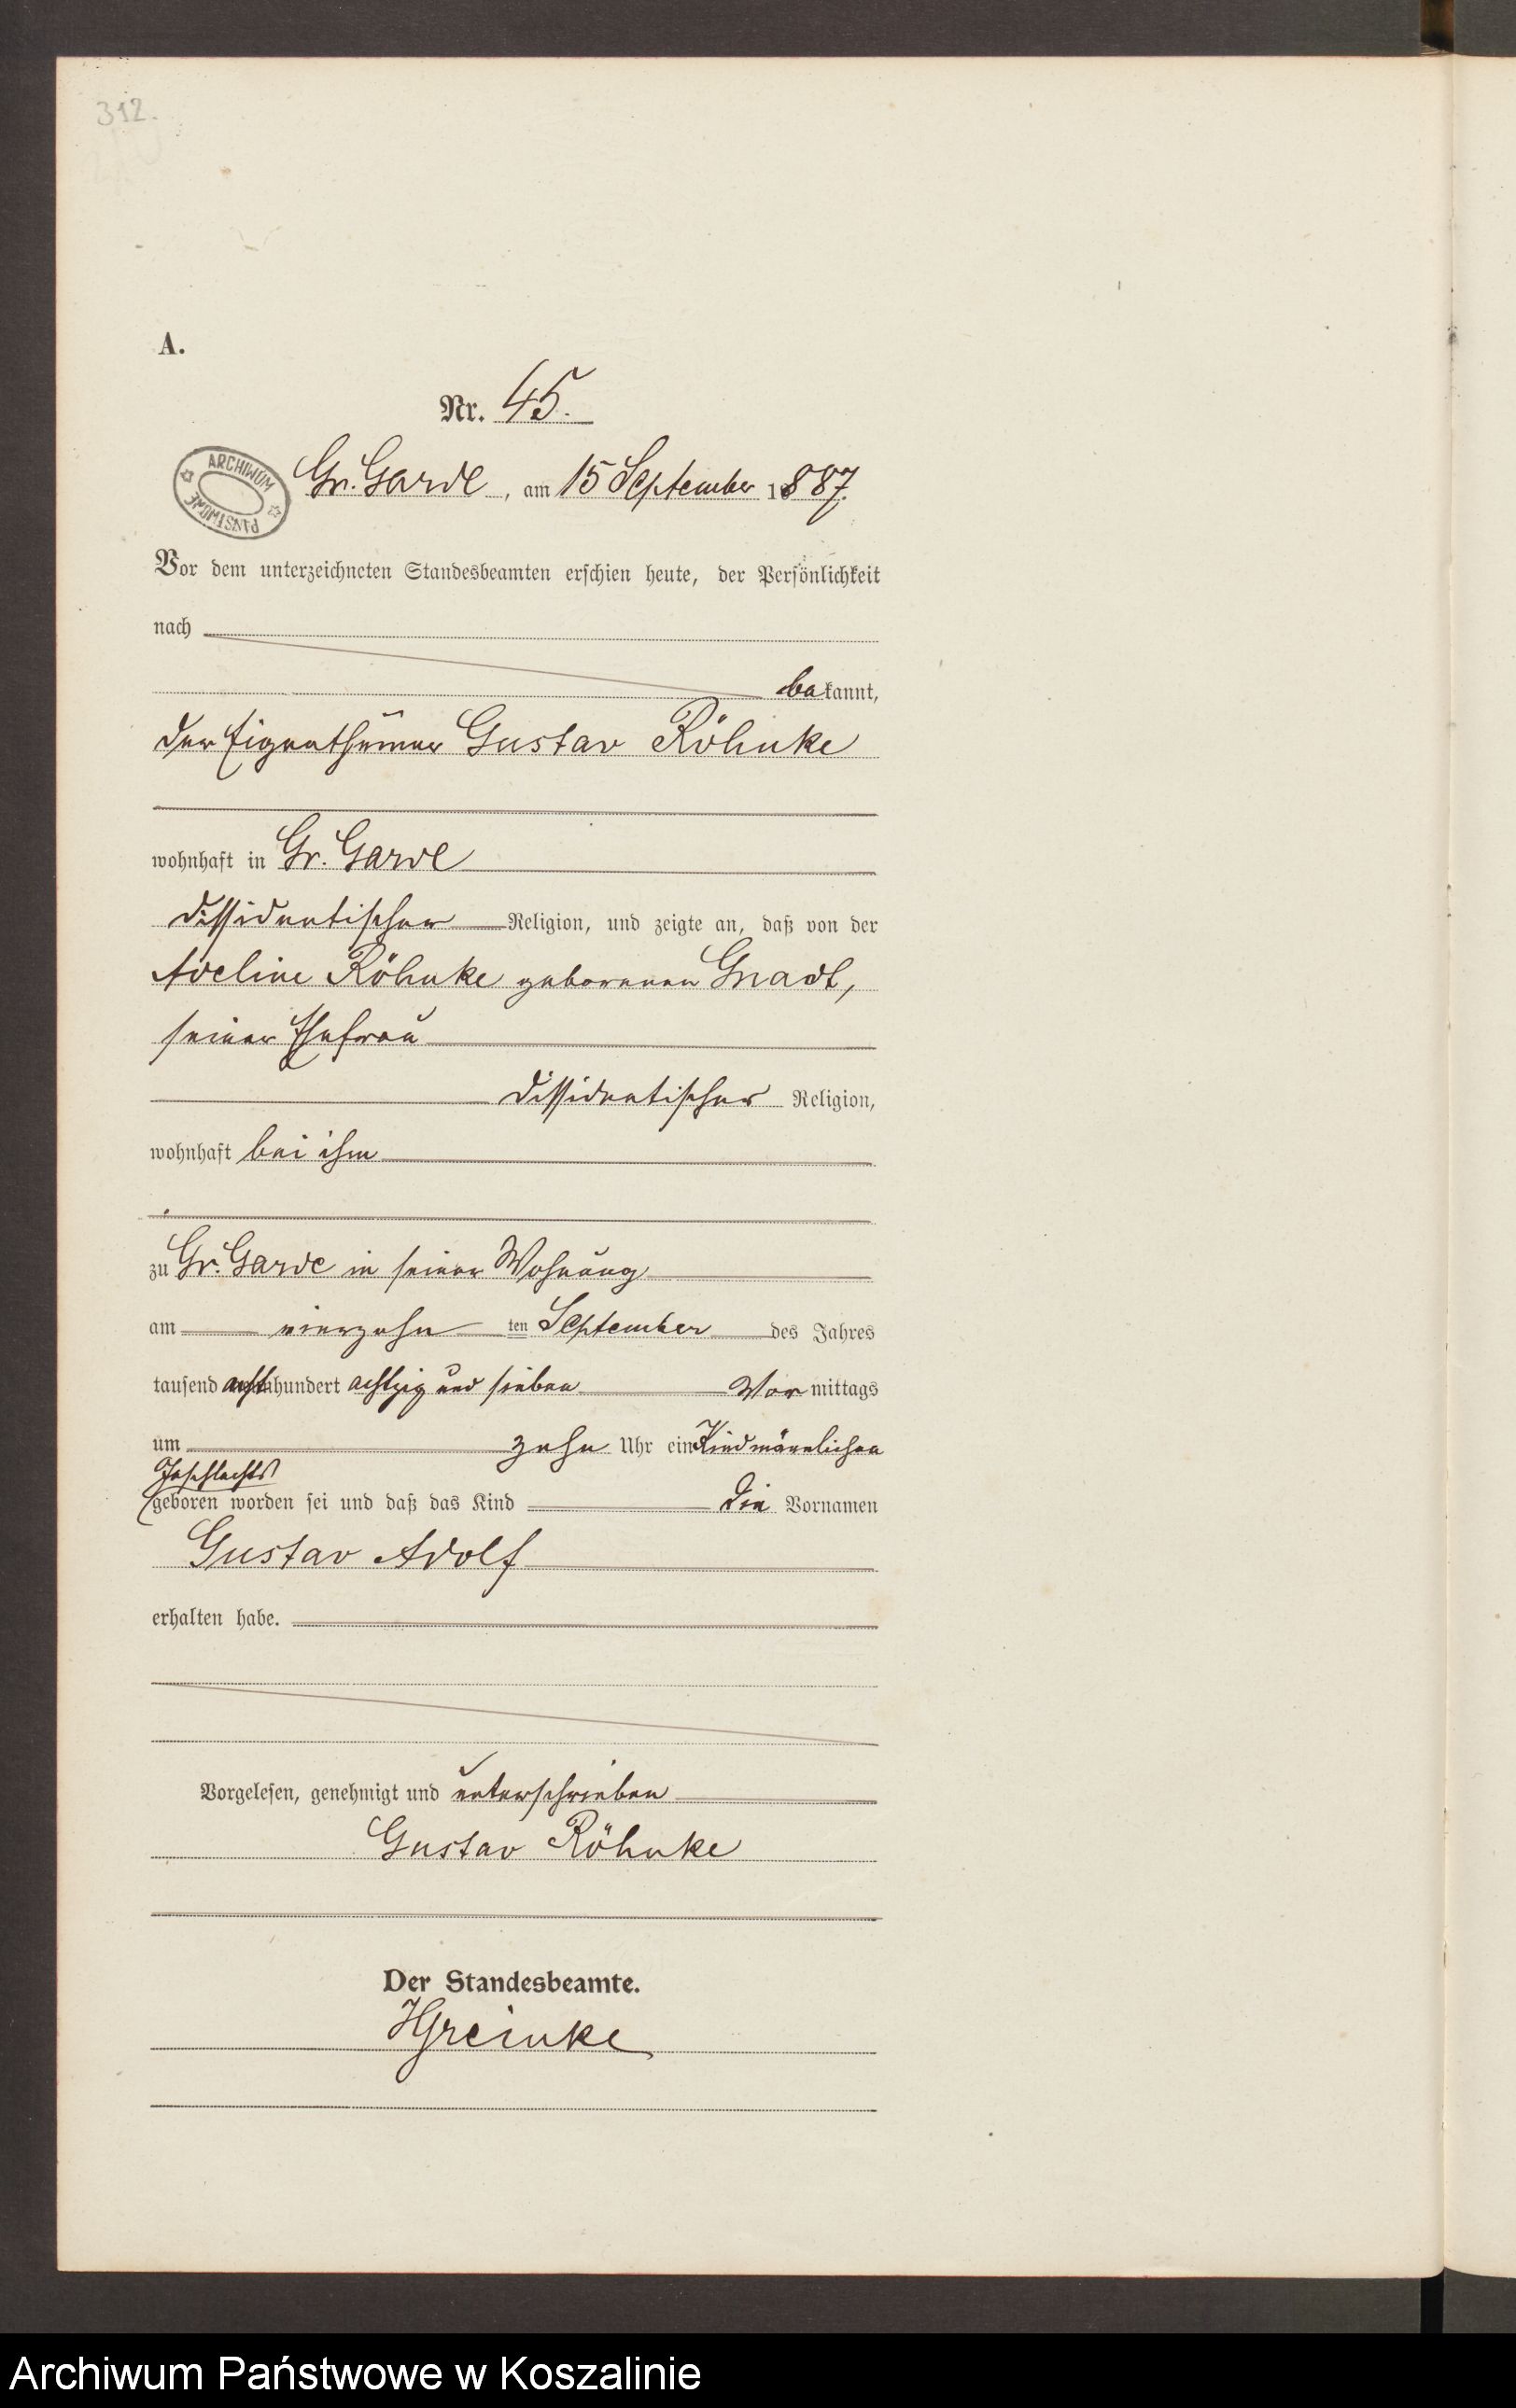 312.
A.
Nr. 45.
ARCHIWUM PAŃSTWOWE
Gr. Garde, am 15 September 1887.
Vor dem unterzeichneten Standesbeamten erschien heute, der Persönlichkeit
nach
bekannt,
der Eigenthümer Gustav Röhnke
wohnhaft in Gr. Garde
dissidentischer Religion, und zeigte an, daß von der
Adeline Röhnke geborenen Gnadt,
seiner Ehefrau
dissidentischer Religion,
wohnhaft bei ihm
zu Gr. Garde in seiner Wohnung
am vierzehn ten September des Jahres
tausend achthundert achtzig und sieben Vor mittags
um zehn Uhr ein Kind männlichen
Geschlechts
geboren worden sei und daß das Kind die Vornamen
Gustav Adolf
erhalten habe.
Vorgelesen, genehmigt und unterschrieben
Gustav Röhnke
Der Standesbeamte.
HGreinke
Archiwum Państwowe w Koszalinie